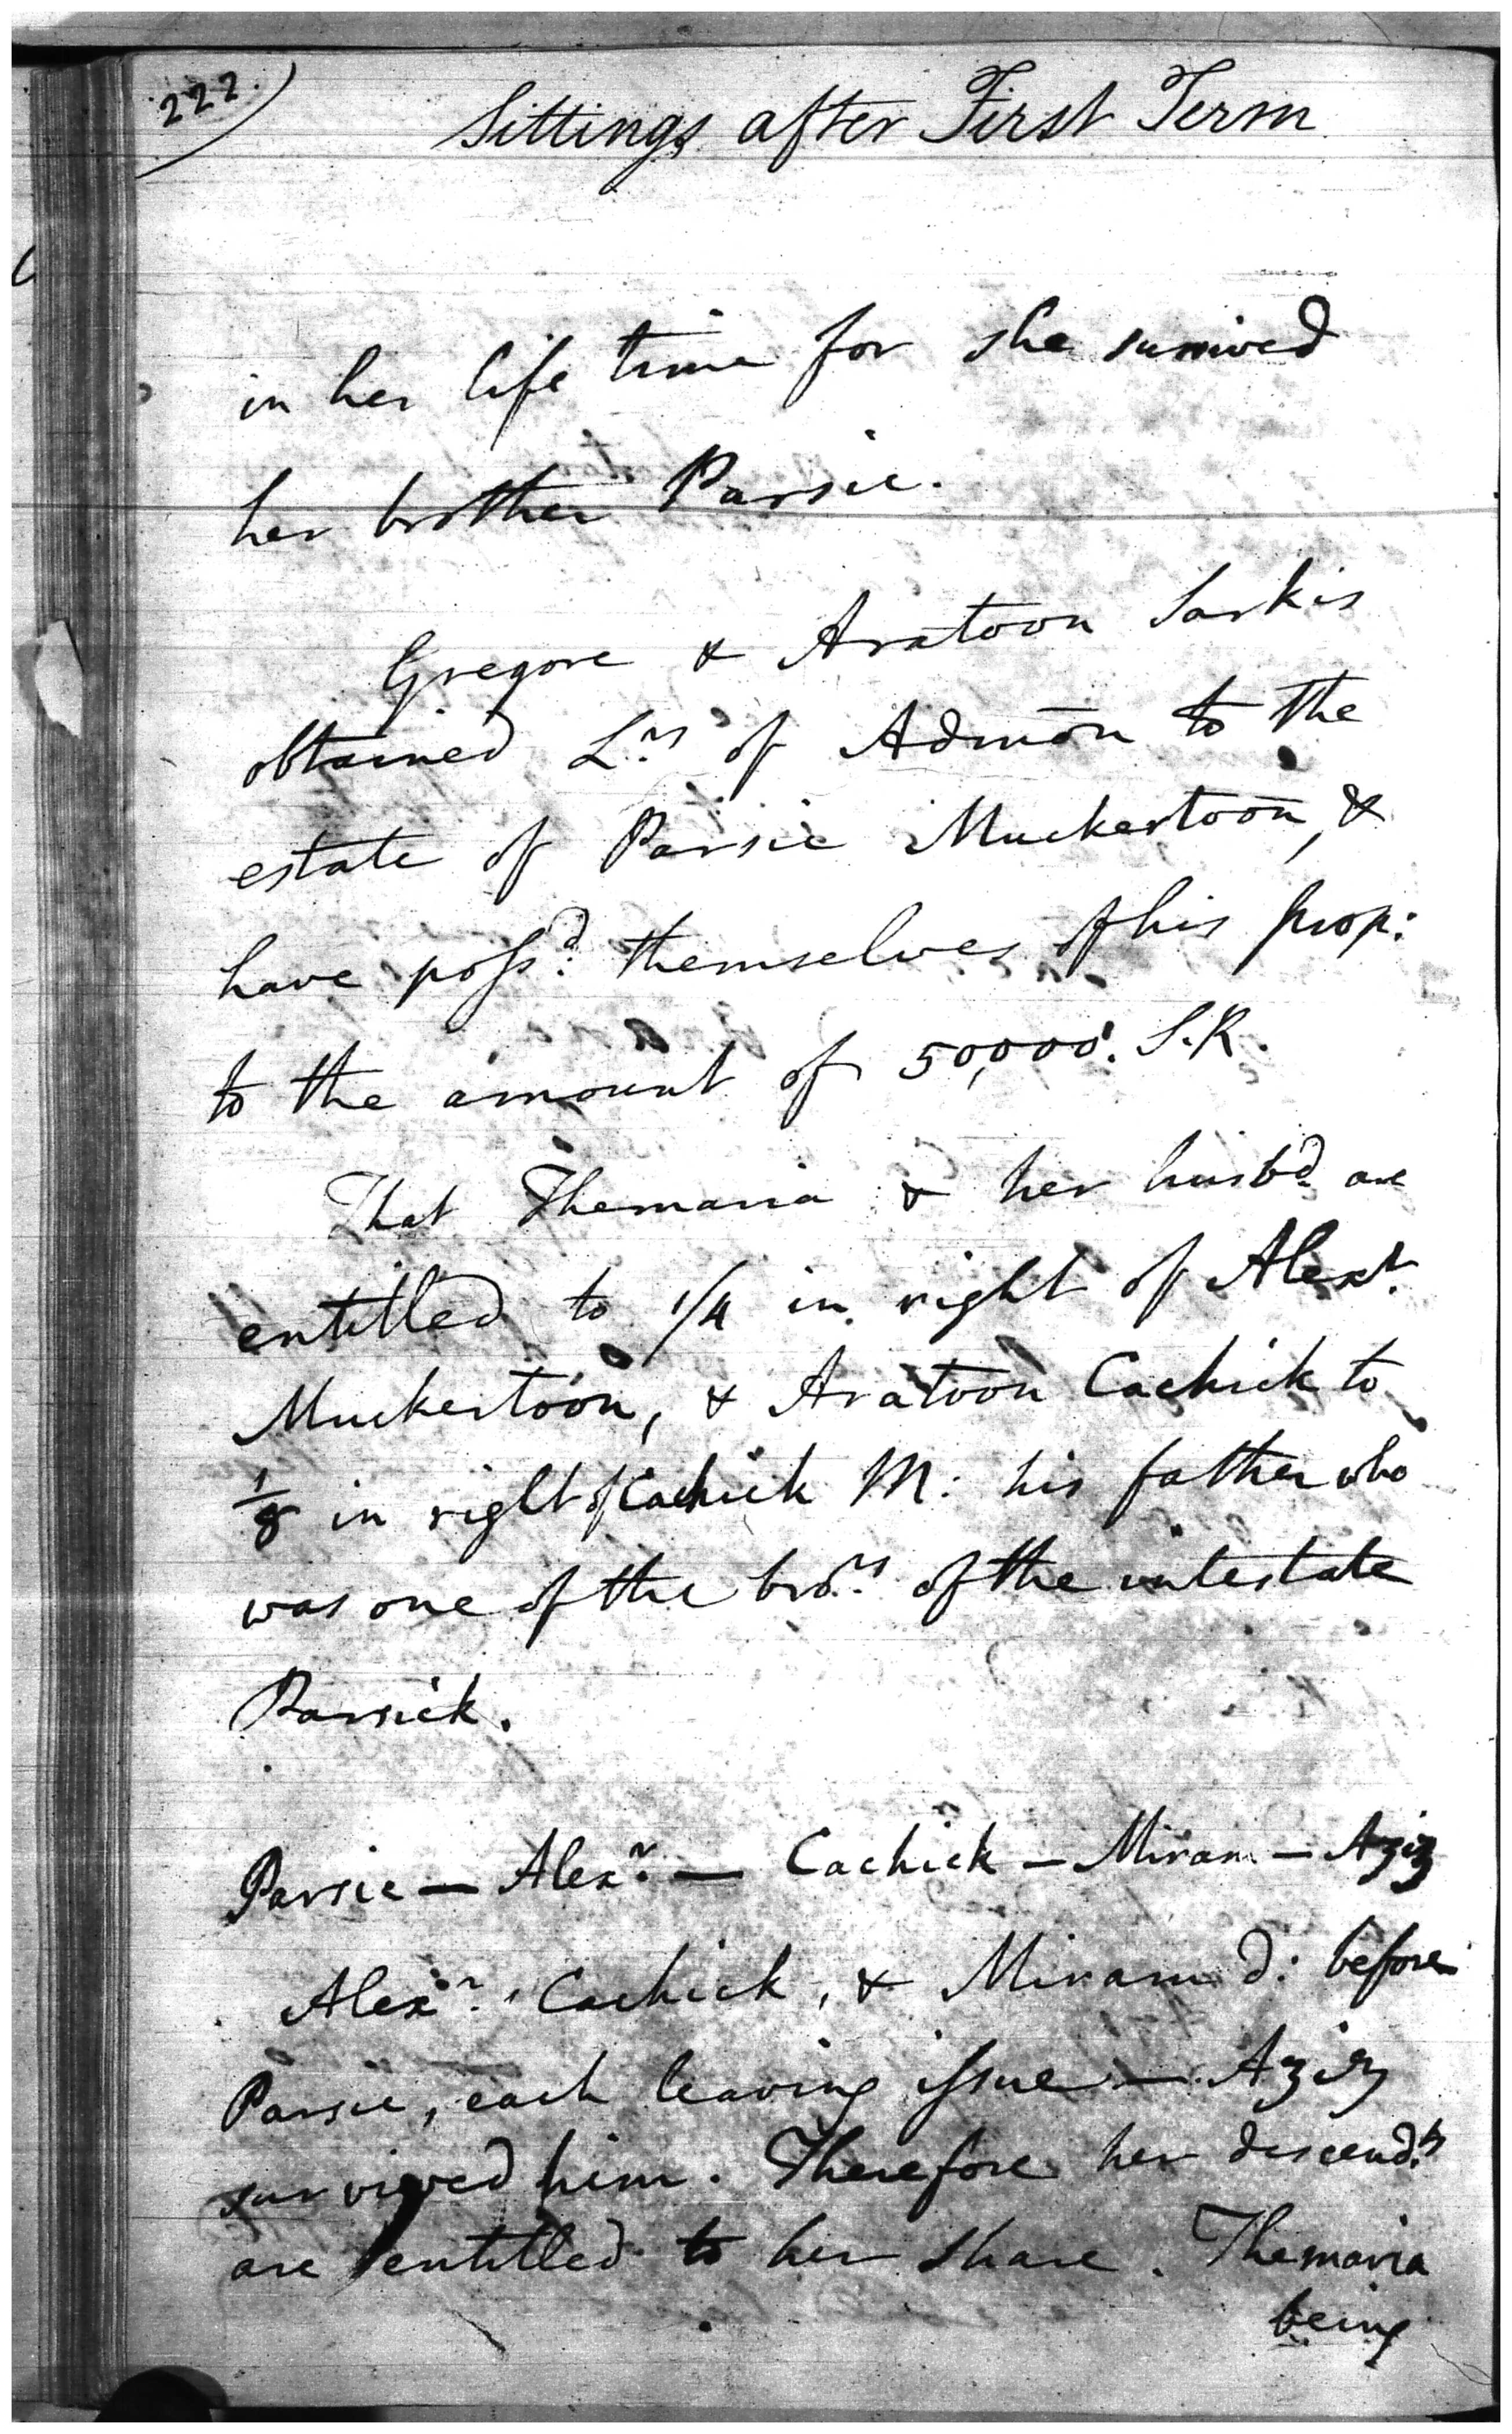 222.
Sittings after First Term
in her life time for she survived
her brother Parsie.
Gregore & Aratoon Sarkis
obtained L.rs of Admōn to the
estate of Parsie Muckertoon, &
have poss.d themselves of his prop:
to the amount of 50,000. S.R.
That Themaria & her husb.d are
entitled to 1/4 in right of Alex.r
Muckertoon, & Aratoon Cachick to
1/8 in right of Cachick M: his father who
was one of the bro.rs of the intestate
Parsick.
Parsie — Alex.r — Cachick — Miram — Aziz
Alex.r Cachick, & Miram d: before
Parsie, each leaving issue — Aziz
survived him. Therefore her descend.ts
are entitled to her share. Themaria
being